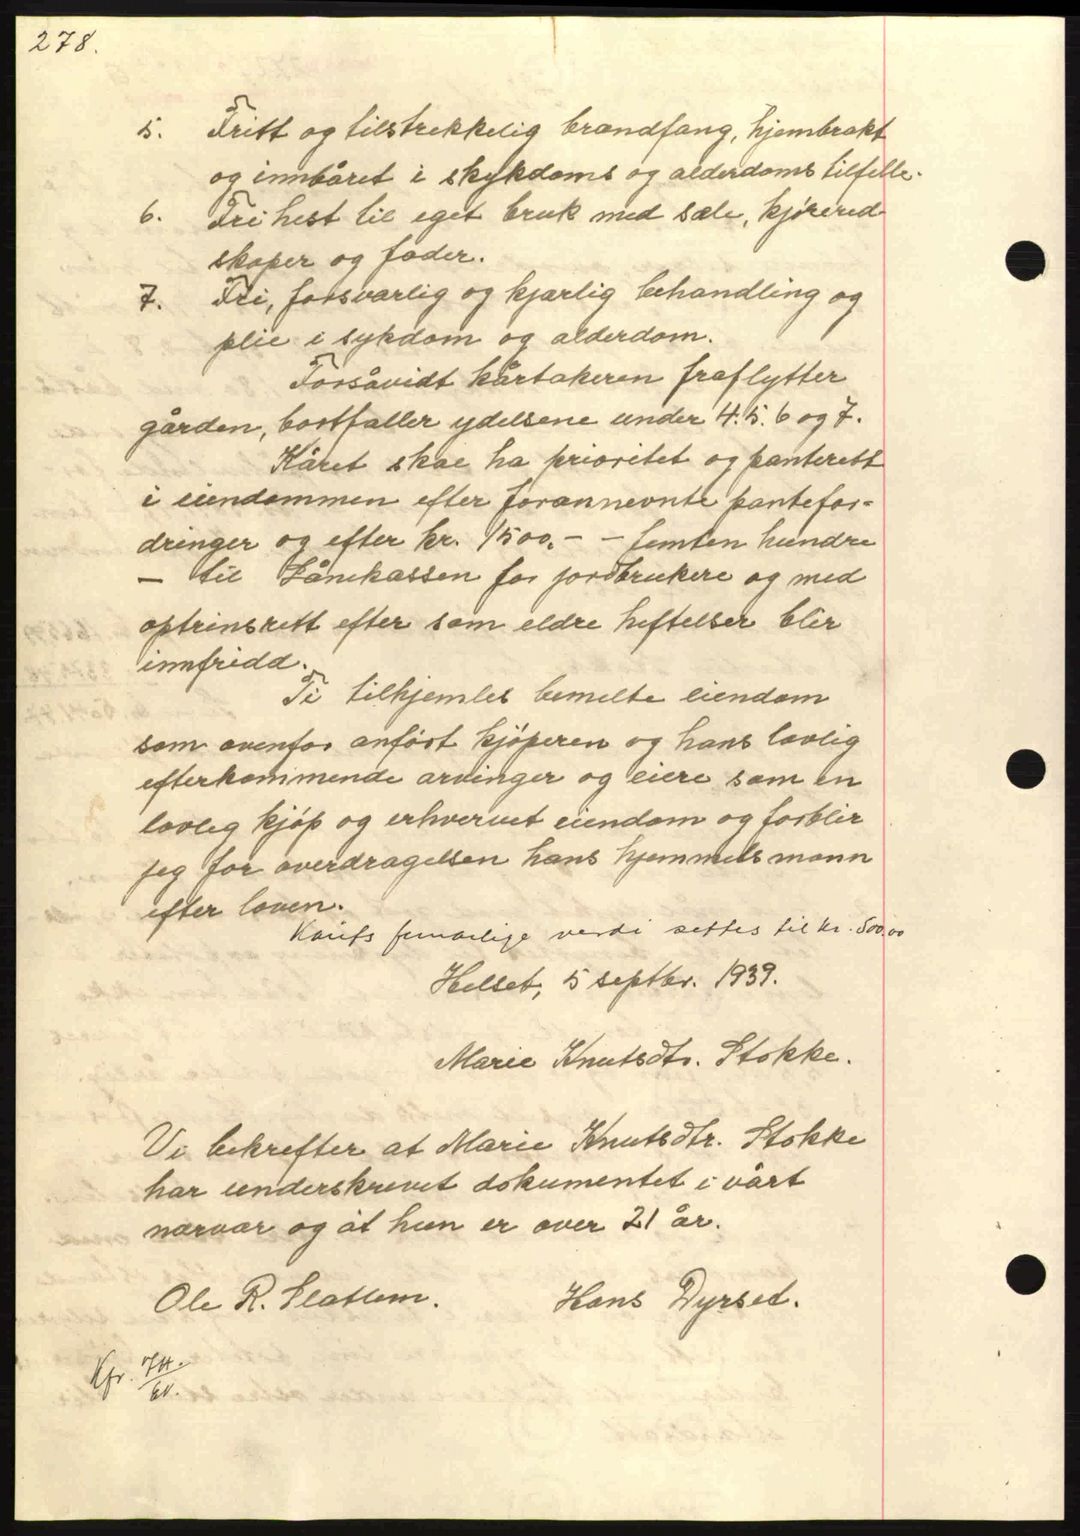 278.
5. Fritt og tilstrekkelig brandfang, hjembrakt
og innbåret i skykdoms og alderdoms tilfelle.
6. Fri hest til eget bruk med sæle, kjørered-
skaper og foder.
7. Fri, forsvarlig og kjærlig behandling og
pleie i sykdom og alderdom.
Forsåvidt kårtakeren fraflytter
gården, bortfaller ydelsene under 4. 5. 6 og 7.
Kåret skal ha prioritet og panterett
i eiendommen efter forannevnte pantefor-
dringer og efter kr. 1500,- - femten hundre
- til Lånekassen for jordbrukere og med
optrinsrett efter som eldre heftelser blir
innfridd.
Ti tilhjemles bemelte eiendom
som ovenfor anført kjøperen og hans lovlig
efterkommende arvinger og eiere som en
lovlig kjøp og erhvervet eiendom og forblir
jeg for overdragelsen hans hjemmelsmann
efter loven.
Kårets femårlige verdi settes til kr. 500.00
Helset, 5 septbr. 1939.
Marie Knutsdtr. Stokke.
Vi bekrefter at Marie Knutsdtr. Stokke
har underskrevet dokumentet i vårt
nærvær og at hun er over 21 år.
Ole R. Slatlem. Hans Dyrset.
Kfr.